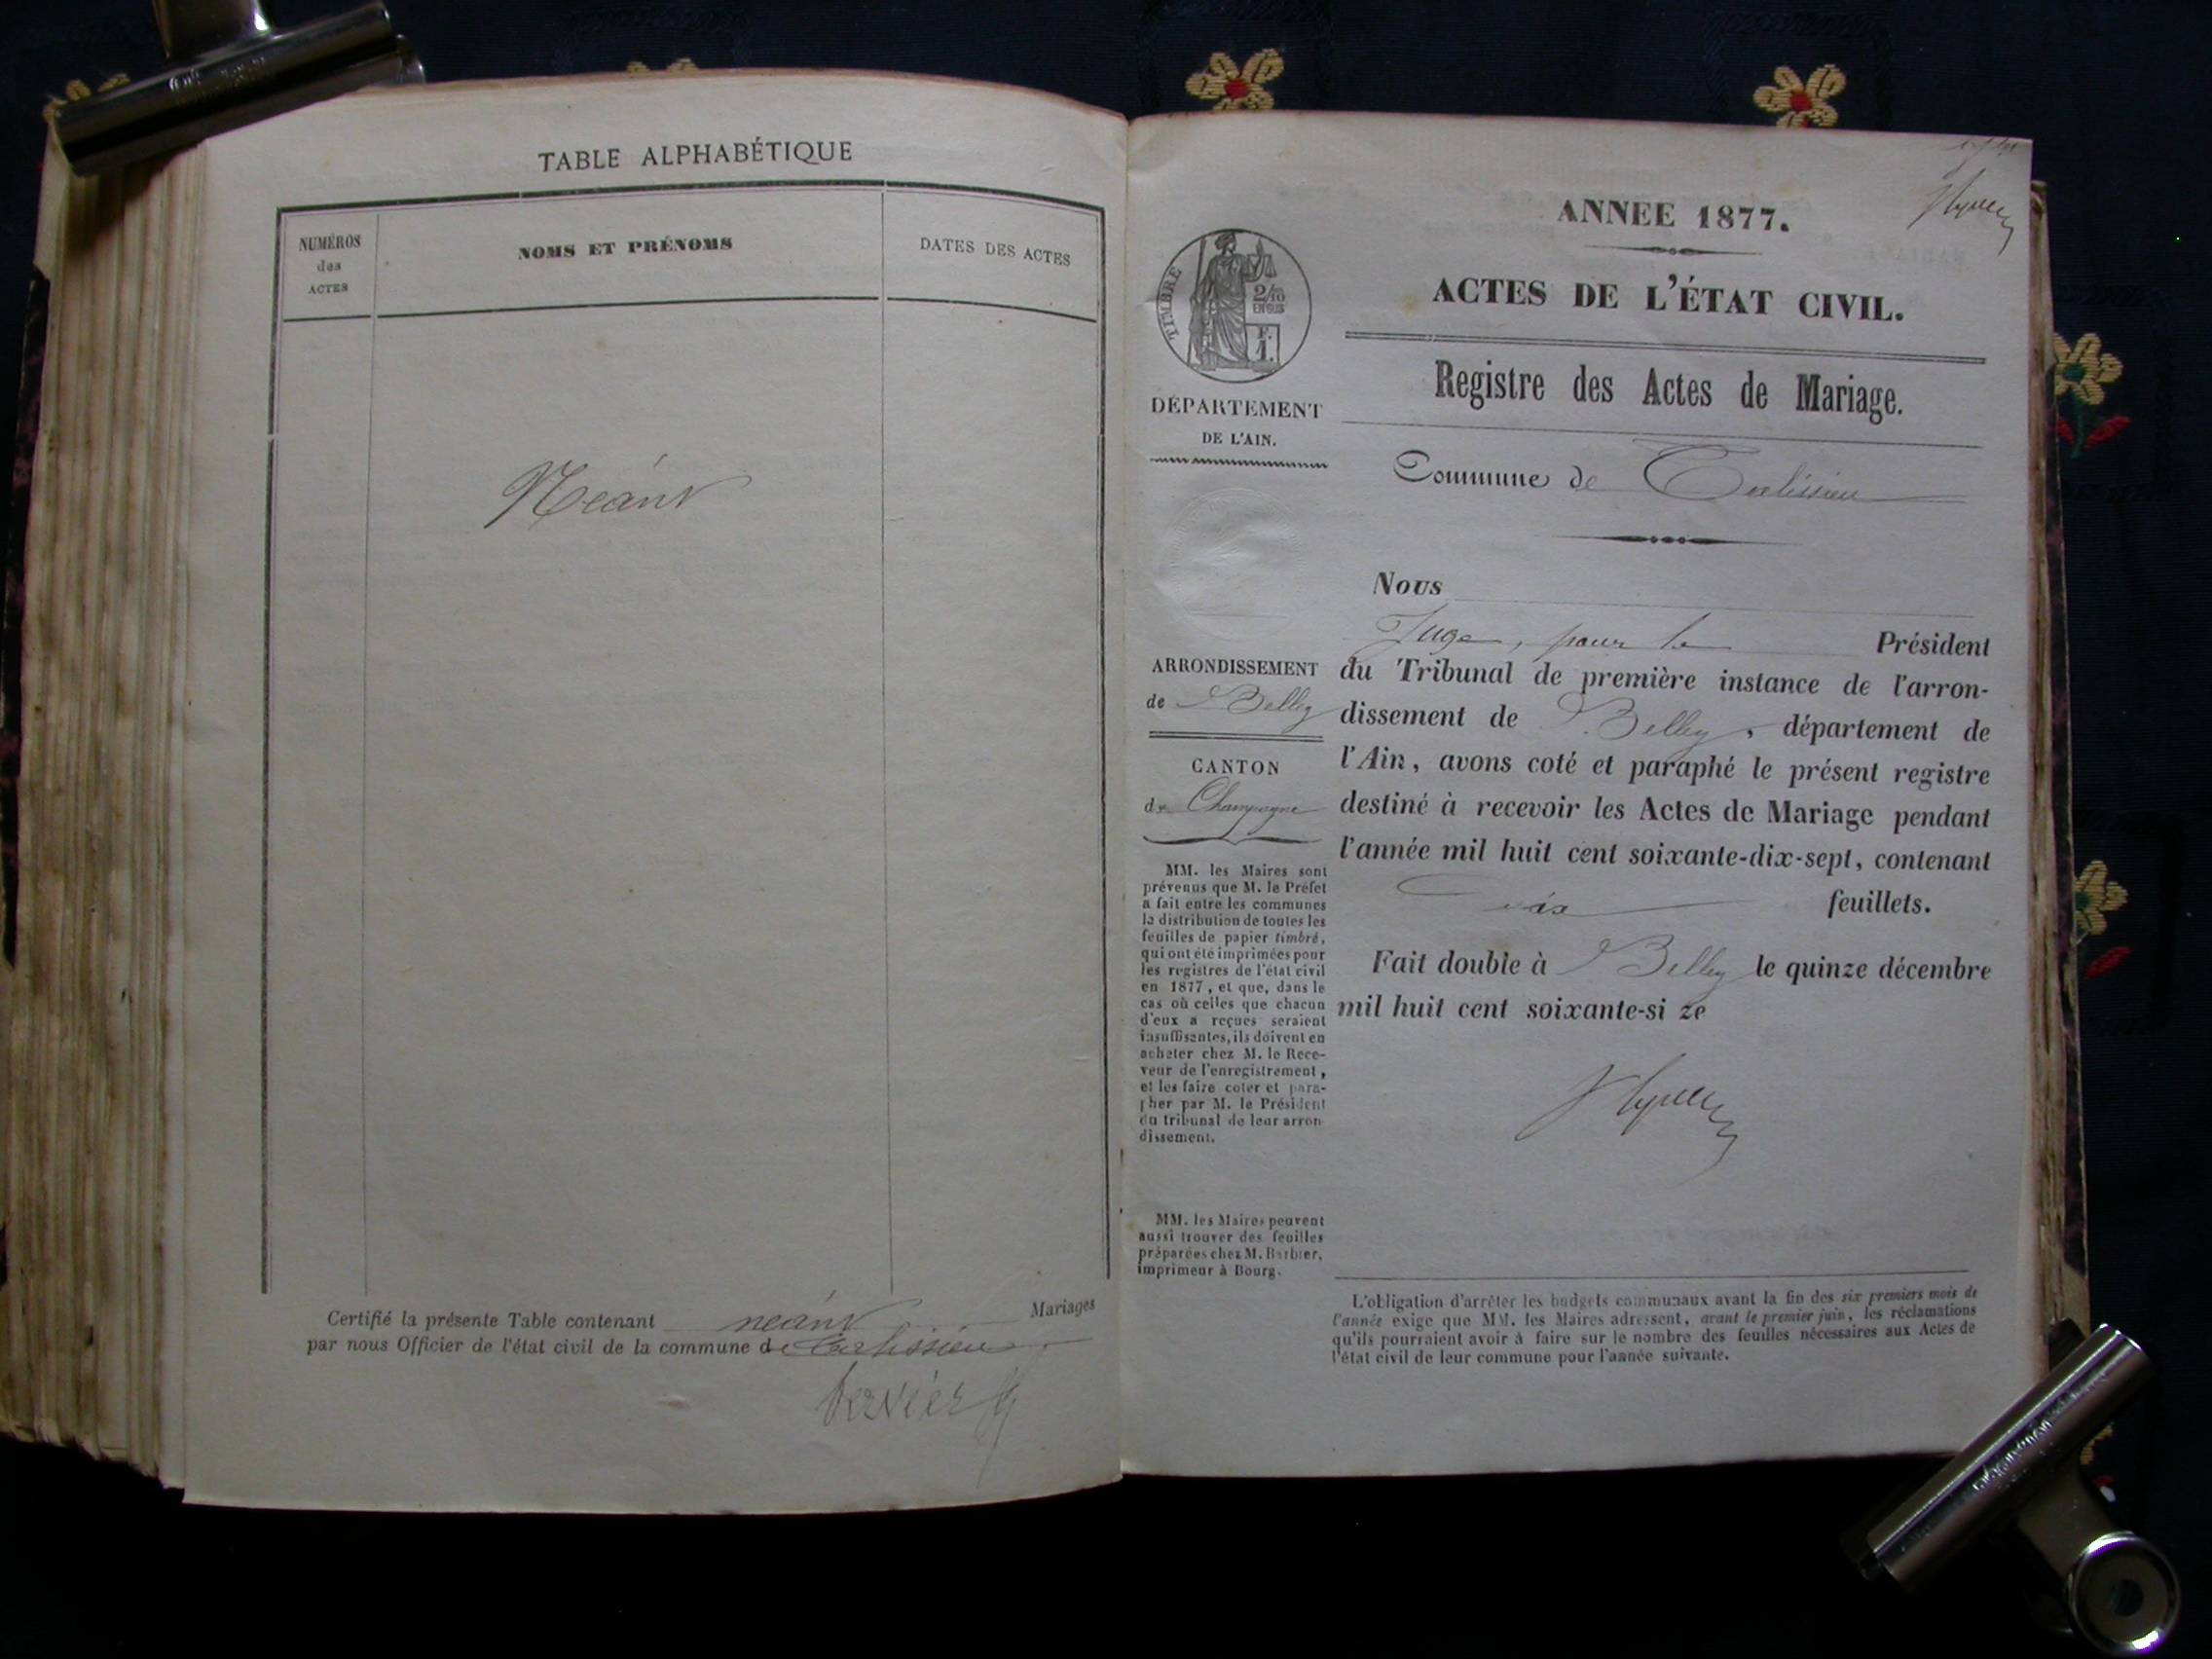 TABLE ALPHABÉTIQUE
NUMÉROS
des
ACTES
NOMS ET PRÉNOMS
DATES DES ACTES
Néant
Certifié la présente Table contenant néant Mariages
par nous Officier de l'état civil de la commune de
ANNEE 1877.
ACTES DE L'ÉTAT CIVIL.
Registre des Actes de Mariage.
TIMBRE
2/10
EN SUS
F.
1.
DÉPARTEMENT
DE L'AIN.
Commune de
ARRONDISSEMENT
de Belley
CANTON
de Champagne
MM. les Maires sont
prévenus que M. le Préfet
a fait entre les communes
la distribution de toutes les
feuilles de papier timbré,
qui ont été imprimées pour
les registres de l'état civil
en 1877, et que, dans le
cas où celles que chacun
d'eux a reçues seraient
insuffisantes, ils doivent en
acheter chez M. le Rece-
veur de l'enregistrement,
et les faire coter et para-
pher par M. le Président
du tribunal de leur arron-
dissement.
MM. les Maires peuvent
aussi trouver des feuilles
préparées chez M. Barbier,
imprimeur à Bourg.
Nous
Juge, pour le Président
du Tribunal de première instance de l'arron-
dissement de Belley, département de
l'Ain, avons coté et paraphé le présent registre
destiné à recevoir les Actes de Mariage pendant
l'année mil huit cent soixante-dix-sept, contenant
feuillets.
Fait double à Belley le quinze décembre
mil huit cent soixante-si ze
L'obligation d'arrêter les budgets communaux avant la fin des six premiers mois de
l'année exige que MM. les Maires adressent, avant le premier juin, les réclamations
qu'ils pourraient avoir à faire sur le nombre des feuilles nécessaires aux Actes de
l'état civil de leur commune pour l'année suivante.